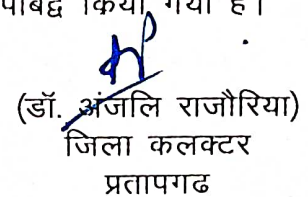 पाबद्ध किया गया है।
(डॉ. अंजलि राजौरिया)
जिला कलक्टर
प्रतापगढ